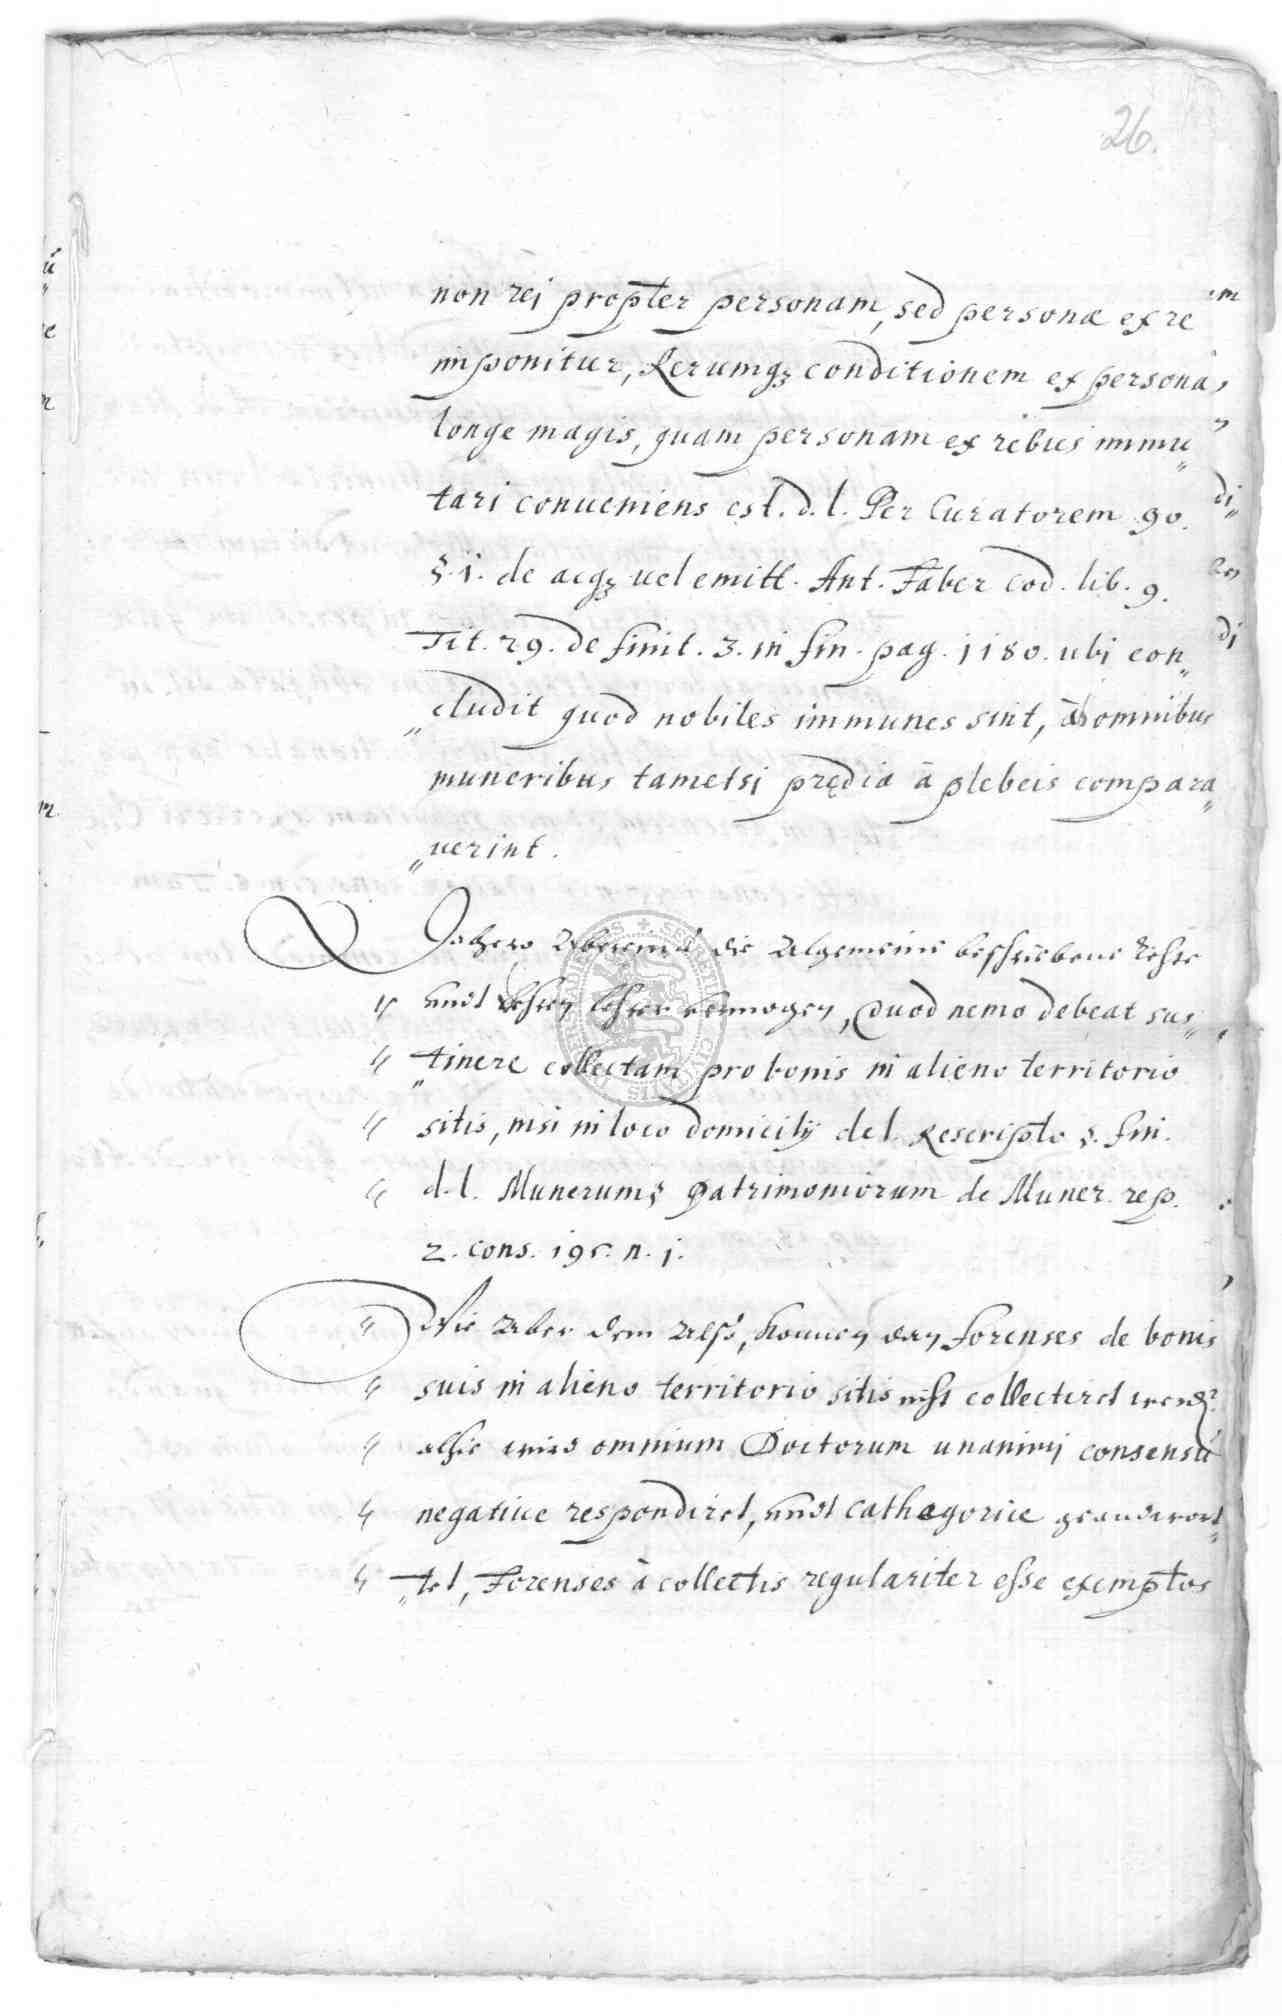 26.
non rei propter personam, sed personæ ex re
imponitur, Rerumq3 conditionem ex persona
longe magis, quam personam ex rebus immu„
tari conueniens est. d. l. Per Curatorem 90.
§. i. de acq3 uel emitt. Ant. Faber Cod. lib. 9.
Tit. 29. definit. 3. in fin. pag. 1180. ubi con„
„cludit quod nobiles immunes sint, ab omnibus
muneribus tametsi prędia à plebeis compara„
„uerint.
Dahero Abermal die Algemeine beschriebene Rechte
undt Rechten Lehrer vermögen, Quod nemo debeat sus„
„tinere collectam pro bonis in alieno territorio
sitis, nisi in loco domicilij de l. Rescripto §. fin.
d. l. Munerum § Patrimoniorum de Muner. resp.
2. cons. 195. n. j.
Wie Aber dem Alß, können dan forenses de bonis
suis in alieno territorio sitis nicht collectiret werden?
alhie wird omnium Doctorum unanimj consensu
negatiue respondiret, undt cathegorice geandtwort„
„tet, Forenses à collectis regulariter esse exemptos